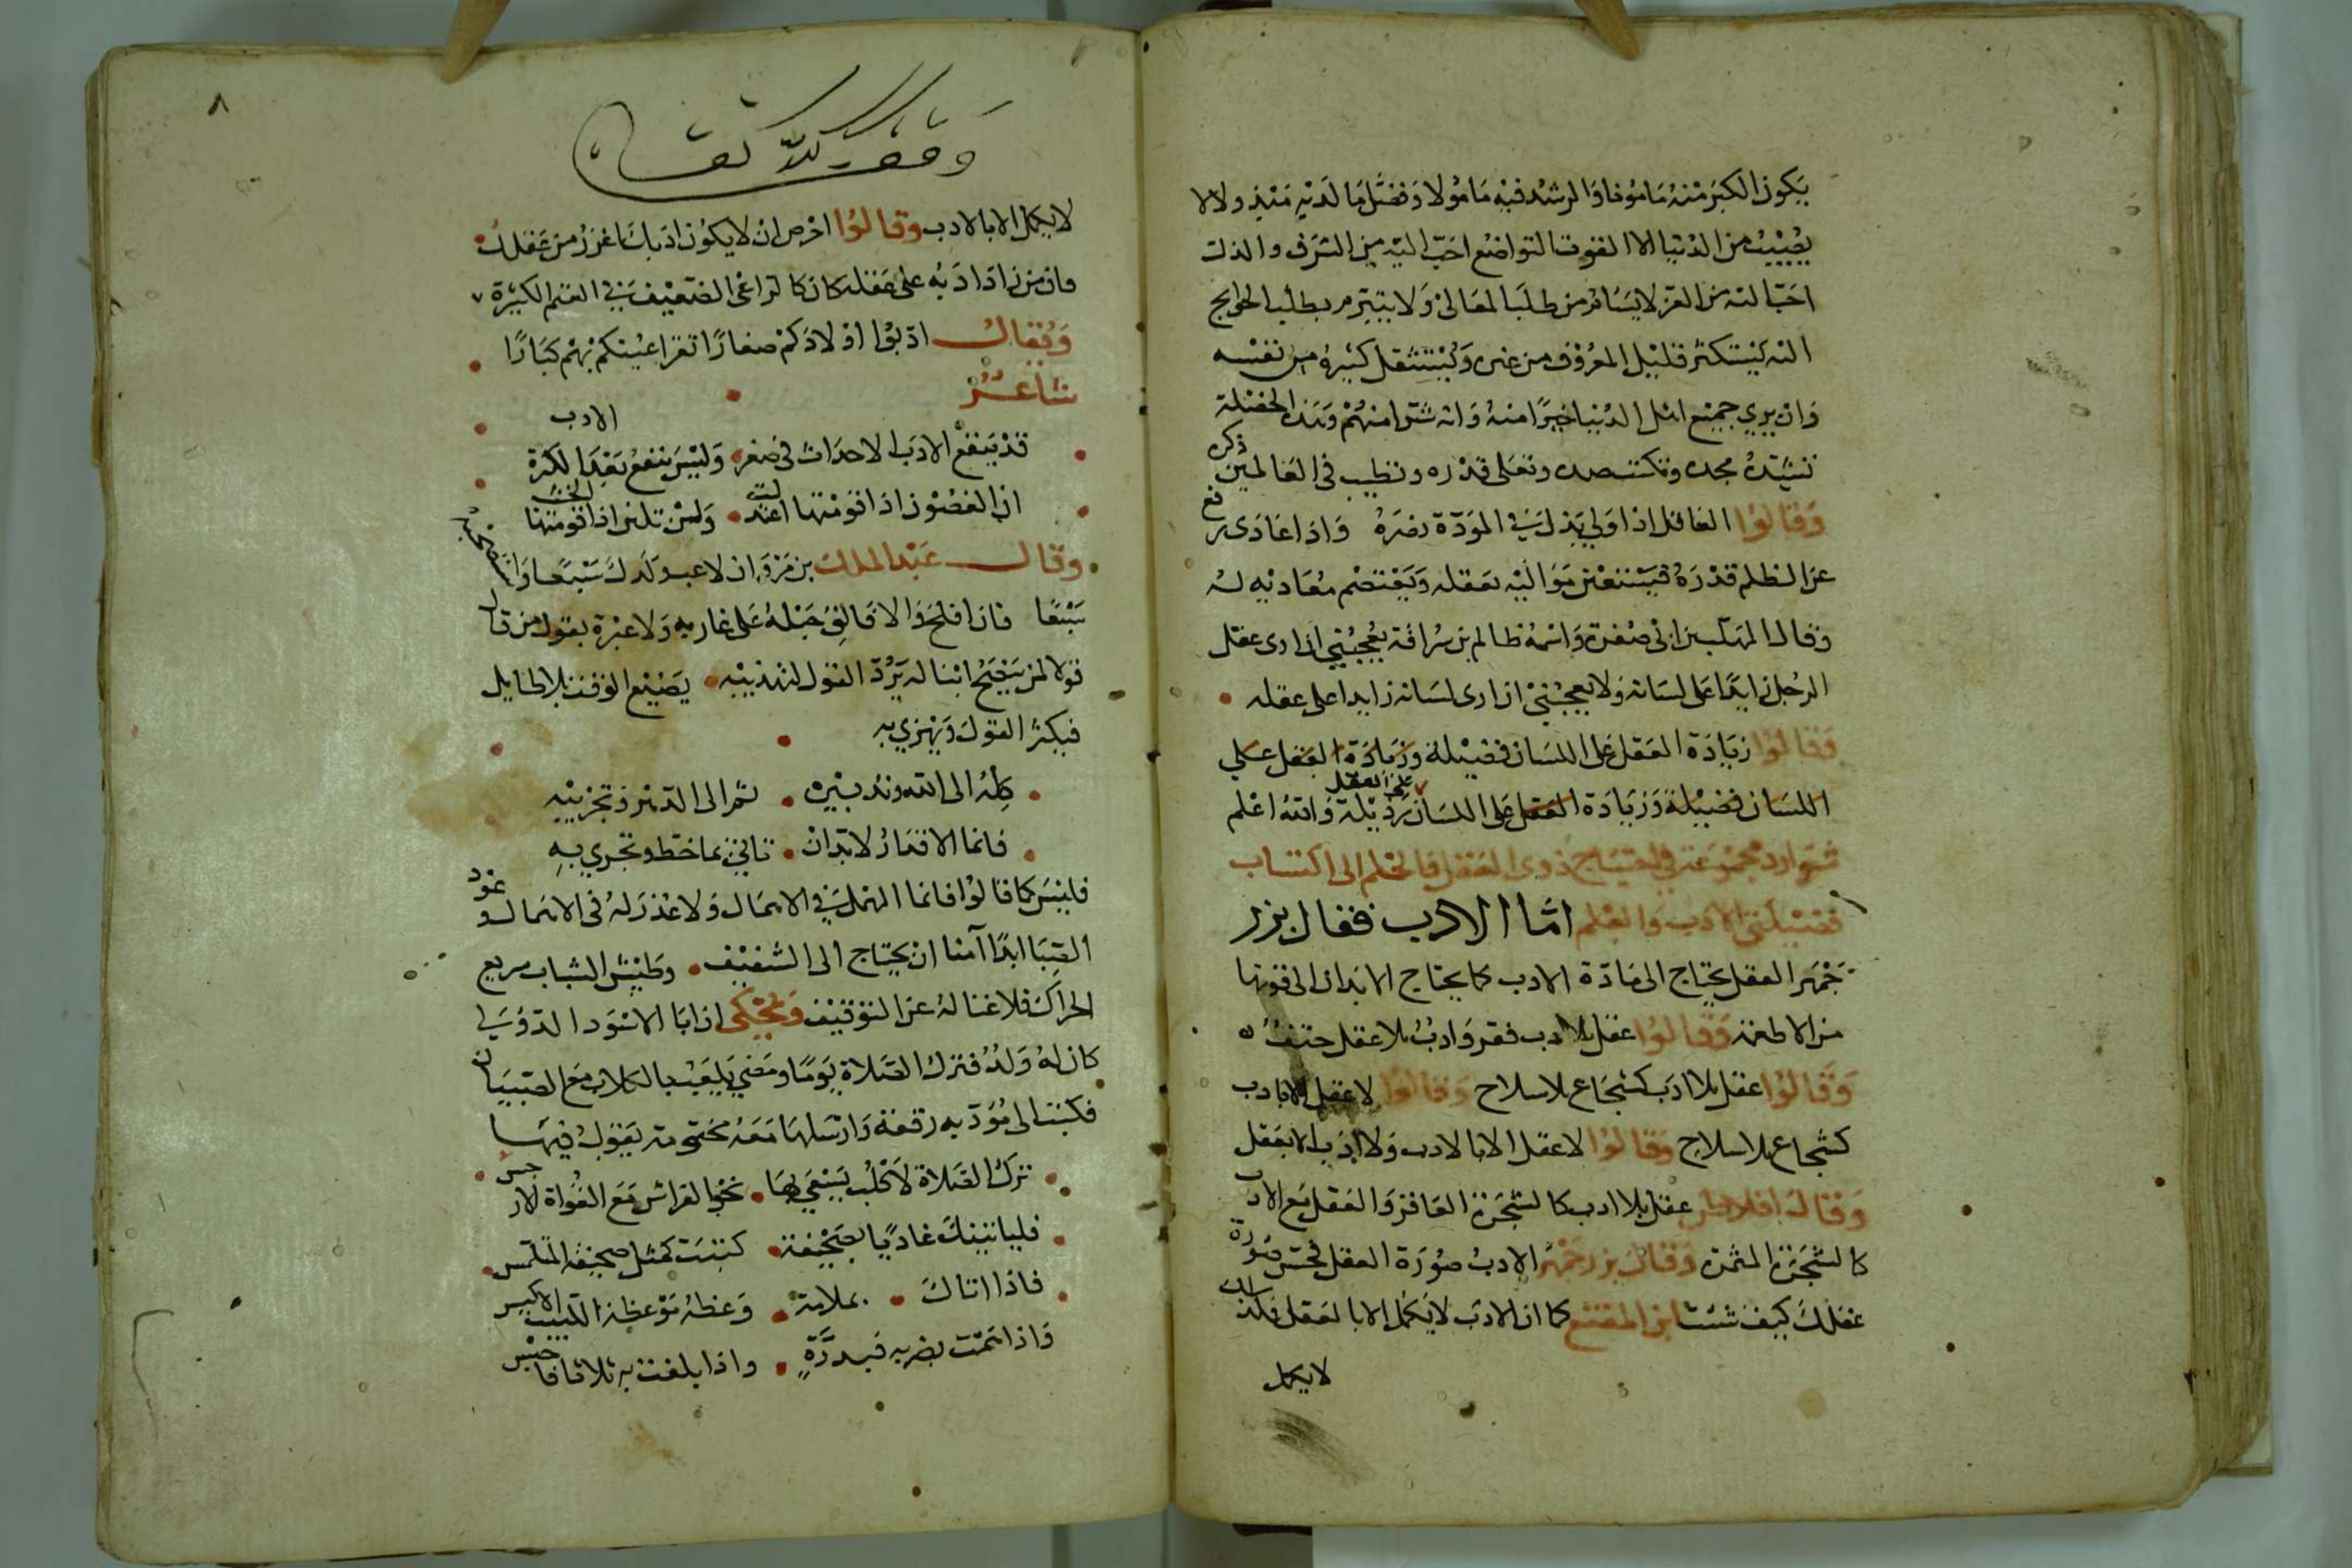 يكون الكبر منه مامونا والرشد فيه مامولا وفضل ما لديه مبذولا لا
يصيب من الدنيا الا القوت التواضع احب اليه من الشرف والذل
احب اليه من العز لا يسام من طلب المعالي ولا يتبرم بطلب الحوايج
اليه يستكثر قليل المعروف من غيره ويستقل كثيره من نفسه
وان يري جميع اهل الدنيا خيرا منه وانه شرا منهم وهذه الخصلة
تشيد مجده وتكبت ضده وتعلي قدره وتطيب في العالمين ذكره
وقالوا العاقل اذا ولي بذل في المودة نصره واذا عادى رفع
عن الظلم قدره فيستغني مواليه بعقله ويعتصم معاديه له
وقال المهلب بن ابي صفرة واسمه ظالم بن سراقة يعجبني ان ارى عقل
الرجل زايدا على لسانه ولا يعجبني ان ارى لسانه زايدا على عقله
وقالوا زيادة العقل على اللسان فضيلة وزيادة العقل على
اللسان فضيلة وزيادة العقل على اللسان على العقل رذيلة والله اعلم
شوارد مجموعة في احتياج ذوي العقل والحلم الى اكتساب
فضيلتي الادب والعلم اما الادب فقال بزر
جمهر العقل يحتاج الى مادة الادب كما يحتاج الابدان الى قوتها
من الاطعمة وقالوا عقل بلا ادب فقر وادب بلا عقل حتف
وقالوا عقل بلا ادب كشجاع بلا سلاح وقالوا لا عقل الا بادب
كشجاع بلا سلاح وقالوا لا عقل الا بالادب ولا ادب الا بعقل
وقال افلاطن عقل بلا ادب كالشجرة العاقر والعقل مع الادب
كالشجرة المثمرة وقال بزرجمهر الادب صورة العقل فحسن صورة
عقلك كيف شئت ابن المقفع كما ان الادب لا يكمل الا بالعقل فكذلك
لا يكمل
٨
وقف لله تعالى
لا يكمل الا بالادب وقالوا احرص ان لا يكون ادبك اغزر من عقلك
فان من زاد ادبه على عقله كان كالراعي الضعيف في الغنم الكثيرة
ويقال ادبوا اولادكم صغارا تقر اعينكم بهم كبارا
شاعر
الادب
قد ينفع الادب الاحداث في صغر وليس ينفع بعد الكبرة
ان الغصون اذا قومتها اعتدلت ولن تلين اذا قومتها الخشب
وقال عبد الملك بن مروان لاعب ولدك سبعا وادبه
سبعا فان افلح والا فالق حبله على غاربه ولا عبرة بقول من قال
قولا لمن ينجح ابنا له يردد القول لتهذيبه يضيع الوقت بلا طايل
فيكثر القول ويهزي به
كله الى الله وتدبيره ثم الى الدهر وتجريبه
فانما الاقدار لا بد ان تاتي بما خط وتجري به
فليس كما قالوا فانما المهمل في الاهمال ولا عذر له في الاهمال وعود
الصبا ابدا آمنا ان يحتاج الى التثقيف وطيش الشباب سريع
الحراك فلا غنا له عن التوقيف ويحكى ان ابا الاسود الدؤلي
كان له ولد فترك الصلاة يوما ومضي يلعب بالكلاب مع الصبيان
فكتب الى مؤدبه رقعة وارسلها معه مختومة يقول فيها
ترك الصلاة لاكلب يسعى بها نحو الهراش مع الغواة الارجس
فلياتينك غاديا بصحيفة كتبت كمثل صحيفة المتلمس
فاذا اتاك بملامة وعظه موعظة اللبيب الاكيس
واذا هممت بضربه فبدرة واذا بلغت به ثلاثا فاحبس